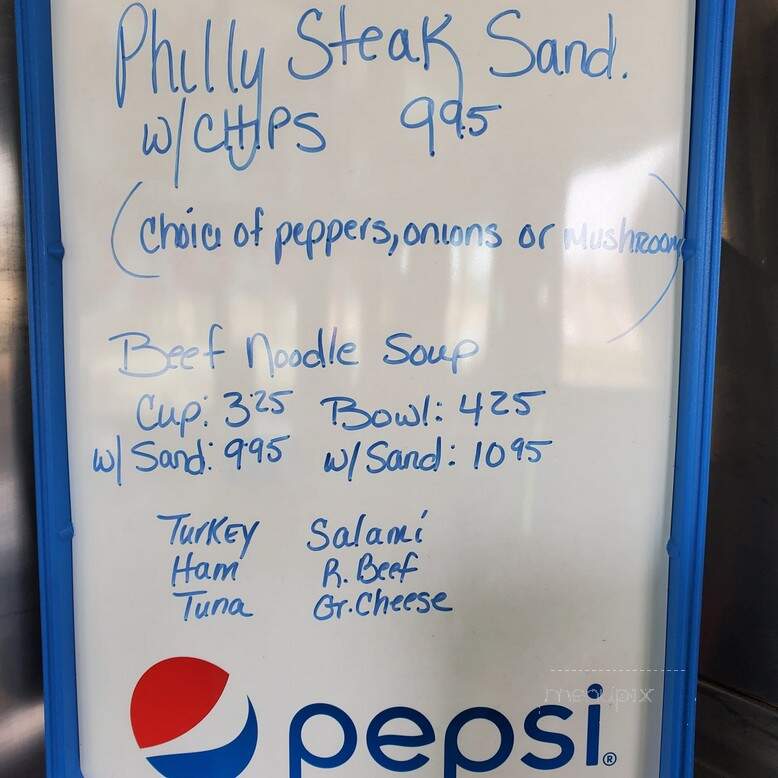 Philly Steak Sand.
w/CHIPS 995
(Choice of peppers, onions or Mushroom)
Beef Noodle Soup
Cup: 325 Bowl: 425
w/Sand: 995 w/Sand: 1095
Turkey Salami
Ham R. Beef
Tuna Gr. Cheese
menupix
pepsi®